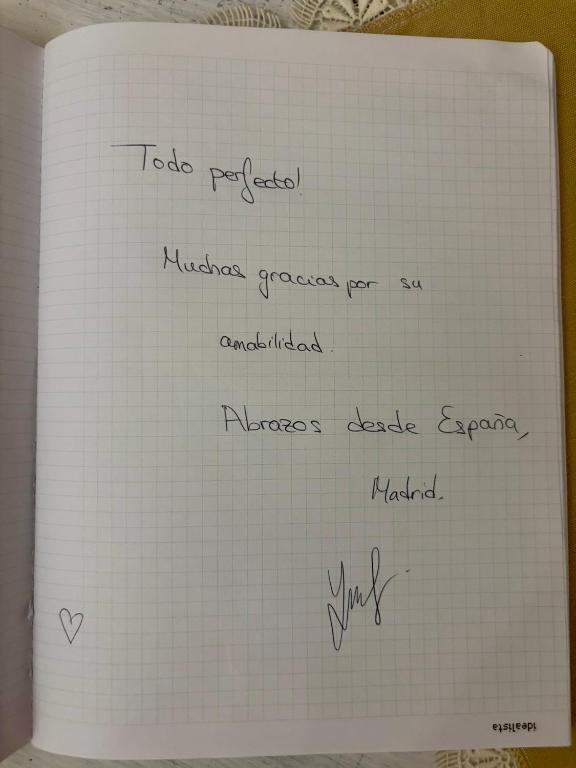 Todo perfecto!
Muchas gracias por su
amabilidad.
Abrazos desde España,
Madrid.
idealista